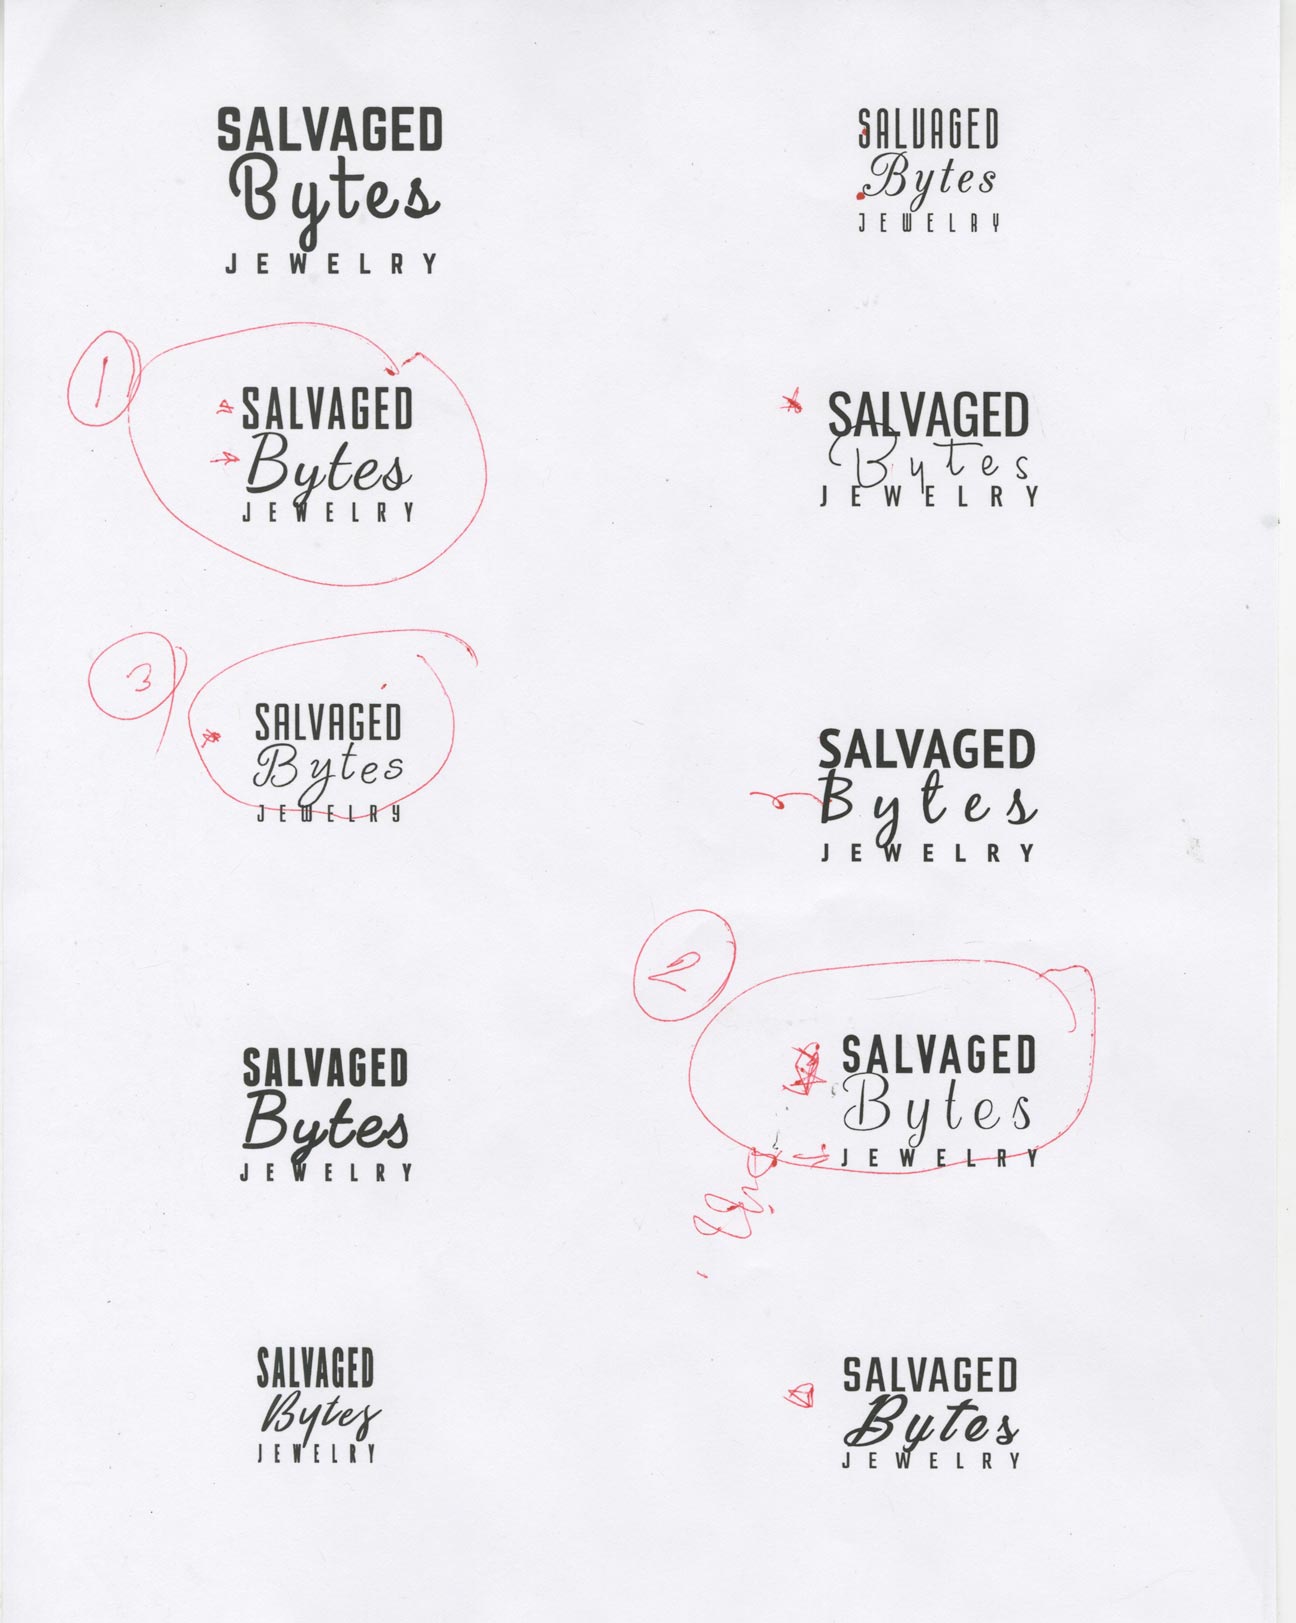 SALVAGED
Bytes
JEWELRY
SALVAGED
Bytes
JEWELRY
1
SALVAGED
Bytes
JEWELRY
SALVAGED
Bytes
JEWELRY
3
SALVAGED
Bytes
JEWELRY
SALVAGED
Bytes
JEWELRY
2
SALVAGED
Bytes
JEWELRY
SALVAGED
Bytes
JEWELRY
SALVAGED
Bytes
JEWELRY
SALVAGED
Bytes
JEWELRY